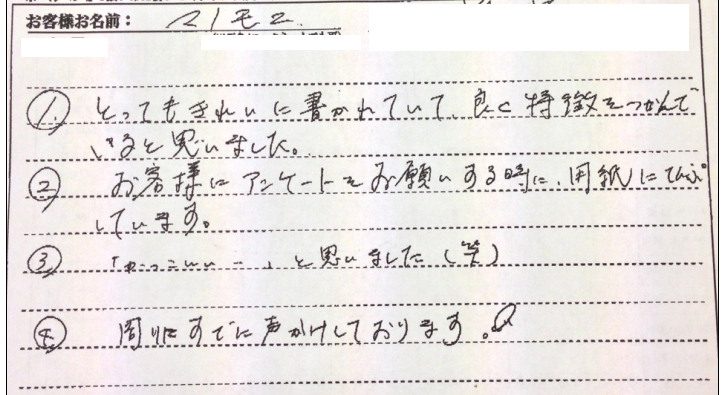 お客様お名前：
① とってもきれいに書かれていて、良く特徴をつかんで
いると思いました。
② お客様にアンケートをお願いする時に、用紙にてんぷ
しています。
③ 「かっこいいー」と思いました（笑）
④ 周りにすでに声かけしております。